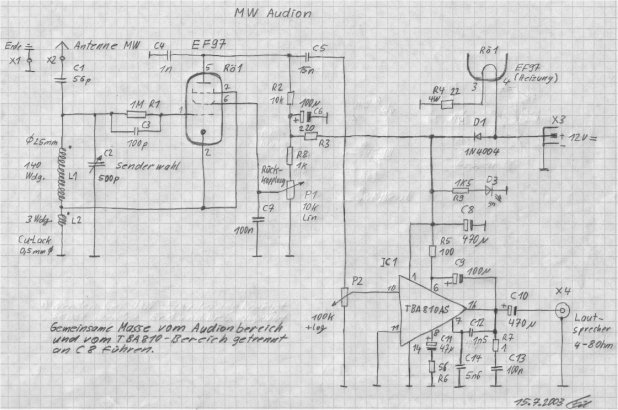 MW Audion
Erde
X1
X2
Antenne MW
C1
56p
C4
1n
EF97
Rö1
5
7
6
1
2
C5
15n
R2
10k
100µ
C6
220
R3
R8
1k
Rück-
kopplung
P1
10k
Lin
1M
R1
C3
100p
Ø25mm
140
Wdg.
L1
C2
500p
Senderwahl
3 Wdg.
L2
CuLack
0,5mm Ø
C7
100n
Rö1
EF97
(Heizung)
3
4
R4
22
4W
D1
1N4004
X3
+
12V=
1K5
R9
D3
C8
470µ
R5
100
C9
100µ
IC1
TBA810AS
1
6
10
16
11
7
8
14
P2
100K
+log
C10
470µ
X4
Laut-
sprecher
4-8Ohm
C12
1n5
R7
1
C13
100n
C11
47µ
56
R6
C14
5n6
Gemeinsame Masse vom Audionbereich
und vom TBA810-Bereich getrennt
an C8 führen.
15.7.2003